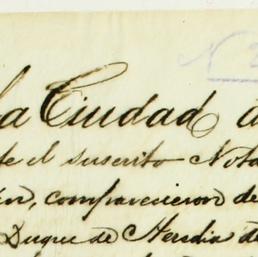 N
la Ciudad d
te el suscrito Nota
in, comparecieron de
Duque de Heredia de